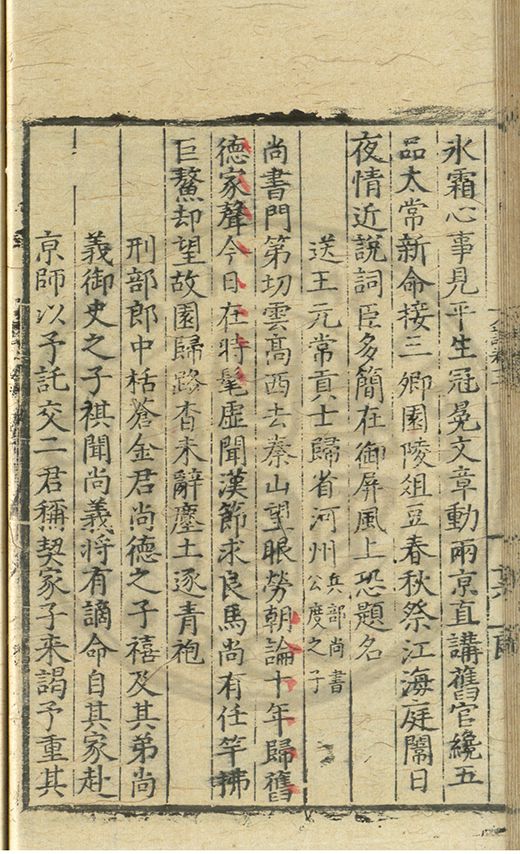 氷霜心事見平生冠冕文章動兩京直講舊官纔五
品太常新命接三卿園陵俎豆春秋祭江海庭闈日
夜情近說詞臣多簡在御屏風上恐題名
送王元常貢士歸省河州兵部尚書公度之子
尚書門第切雲髙西去秦山望眼勞朝論十年歸舊
德家聲今日在時髦虚聞漢節求良馬尚有任竿拂
巨鰲却望故園歸路杳未辭塵土逐青袍
刑部郎中栝蒼金君尚德之子禧及其弟尚
義御史之子祺聞尚義将有謫命自其家赴
亰師以予託交二君稱契家子来謁予重其